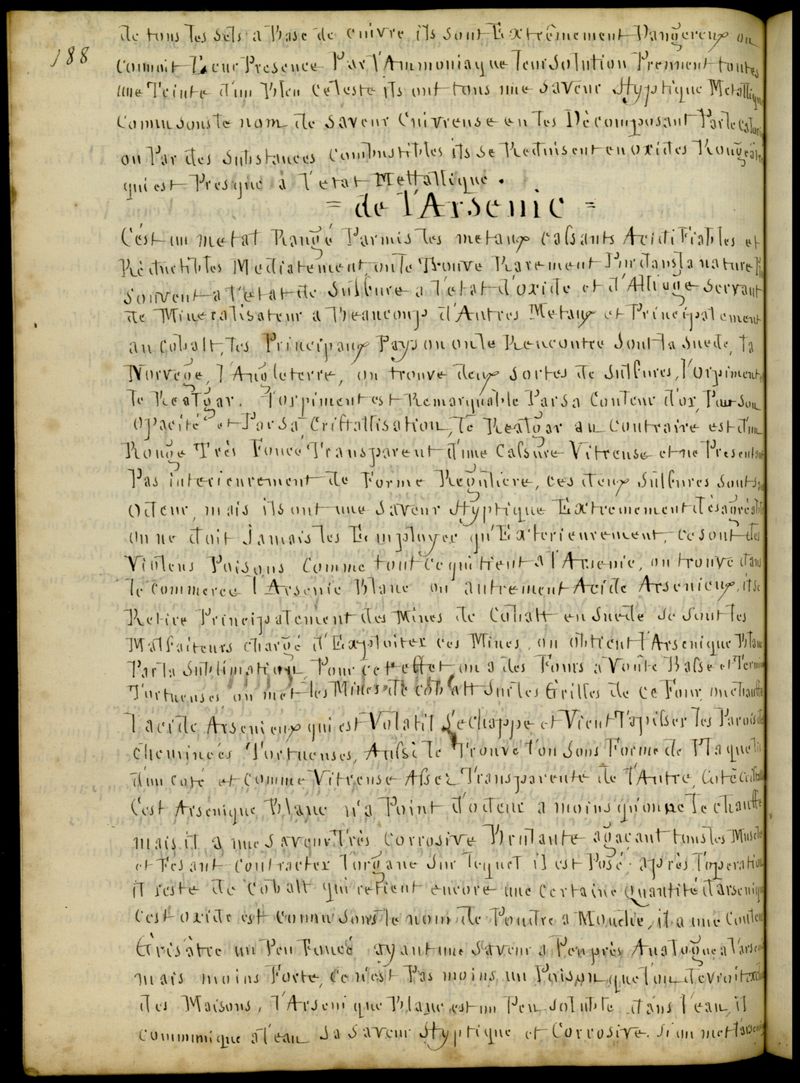 188
de tous les sels a Base de Cuivre ils sont Extrêmement Dangereux on
Connoit Leur Presence Par l'Ammoniaque leur solution Prennent toutes
une Teinte d'un Bleu Celeste ils ont tous une Saveur Styptique Metallique
Connu sous le nom de Saveur Cuivreuse en les Décomposant Par le
ou Par des Substances Combustibles ils se Reduisent en oxides Rouge
qui est Presque à l'etat Mettallique .
= de l'Arsenic =
C'est un metal Rangé Parmis les metaux Cassants Acidifiables et
Réductibles Mediatement on le Trouve Rarement Pur dans la nature
Souvent a l'etat de Sulfure a l'etat d'oxide et d'Alliage Servant
de Mineralisateur a Beaucoup d'Autres Metaux et Principalement
au Cobalt, les Principaux Pays ou on le Rencontre Sont la Suede, la
Norvege, l'Angleterre, on trouve deux Sortes de Sulfures, l'orpiment,
le Realgar. l'orpiment est Remarquable Par sa Couleur d'or, Par son
opacité et Par sa Cristallisation, le Realgar au Contraire est d'un
Rouge Très Foncé Transparent d'une Cassure Vitreuse et ne Presente
Pas interieurement de Forme Reguliere, Ces deux Sulfures Sont
odeur, mais ils ont une Saveur Styptique Extremement désagréable
on ne doit Jamais les Employer qu'Exterieurement, Ce sont des
Violens Poisons Comme tout Ce qui tient a l'Arsenic, on trouve dans
le Commerce l'Arsenic Blanc ou autrement Acide Arsenieux, il se
Retire Principalement des Mines de Cobalt en Suede Se sont les
Malfaiteurs Chargé d'Exploiter Ces Mines, on obtient l'Arsenique Blanc
Par la Sublimation, Pour Cet effet on a des Fours a Voute Basse et
Tortueuses on met les Mines de Cobalt Sur les Grilles de Ce Four, on chauffe
l'acide Arsenieux qui est Volatil S'echappe et Vient Tapisser les Parois
Cheminées Tortueuses, Aussi le Trouve t'on sous Forme de Plaque
d'un Coté et Comme Vitreuse Assez Transparente de l'Autre,
C'est Arsenique Blanc n'a Point d'odeur a moins qu'on ne le chauffe
mais il a une Saveur Très Corrosive Brulante agacant tous les Muscles
et Fesant Contracter l'organe Sur lequel il est Posé. après l'operation
il reste de Cobalt qui retient encore une Certaine Quantité d'arsenique
C'est oxide est Connu Sous le nom de Poudre a Mouche, il a une Couleur
Grisâtre un Peu Foncé ayant une Saveur a Peu près Analogue a l'arsenic
mais moins Forte, Ce n'est Pas moins un Poison que l'on devroit
des Maisons, l'Arsenique Blanc est un Peu Soluble dans l'eau, il
Communique a l'eau Sa Saveur Styptique et Corrosive. si on met